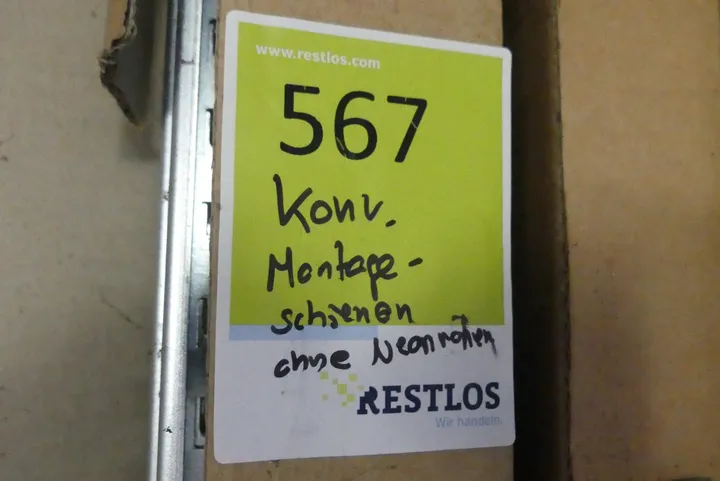 www.restlos.com
567
Konv.
Montage-
schienen
ohne Neonröhren
RESTLOS
Wir handeln.